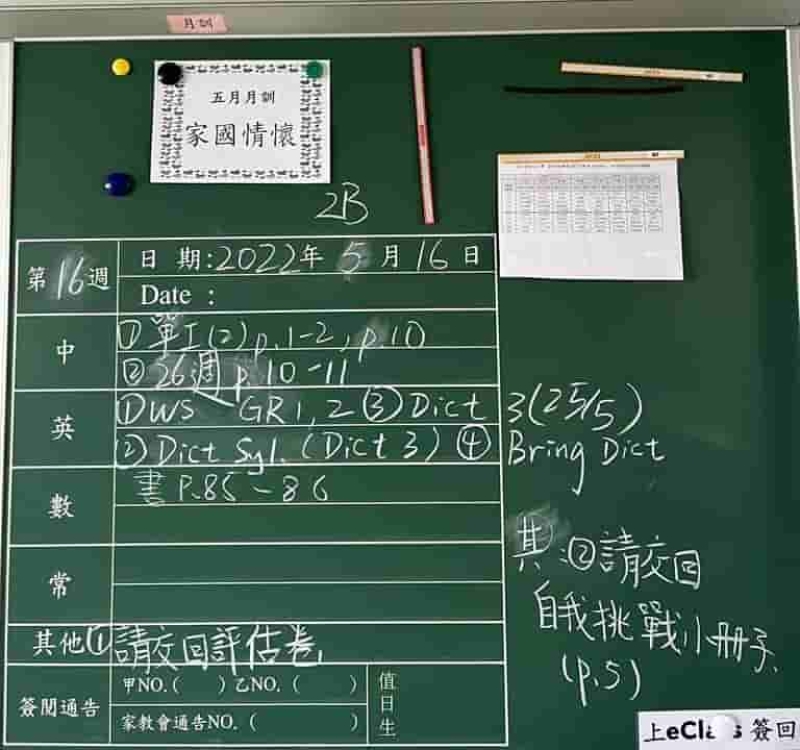 月訓
五月月訓
家國情懷
2B
第16週 日 期:2022年 5 月 16 日
Date :
中 ①單工(2) p.1-2, p.10
② 26週 p.10-11
英 ①WS GR1, 2 ③Dict 3(25/5)
②Dict Syl. (Dict 3) ④ Bring Dict
數 書 P.85-86
常
其他①請交回評估卷
其:②請交回
自我挑戰小冊子
(p.5)
簽閱通告 甲NO.( ) 乙NO. ( ) 值日生
家教會通告NO. ( )
簽回